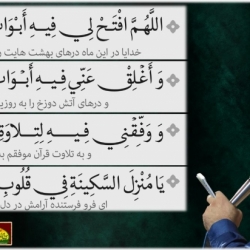 اللَّهُمَّ افْتَحْ لِي فِيهِ أَبْوَابَ
خدایا در این ماه درهای بهشت هایت
وَ أَغْلِقْ عَنِّي فِيهِ أَبْوَابَ
و درهای آتش دوزخ را به رویم
وَ وَفِّقْنِي فِيهِ لِتِلَاوَةِ
و به تلاوت قرآن موفقم
يَا مُنْزِلَ السَّكِينَةِ فِي قُلُوبِ
ای فرو فرستنده آرامش در